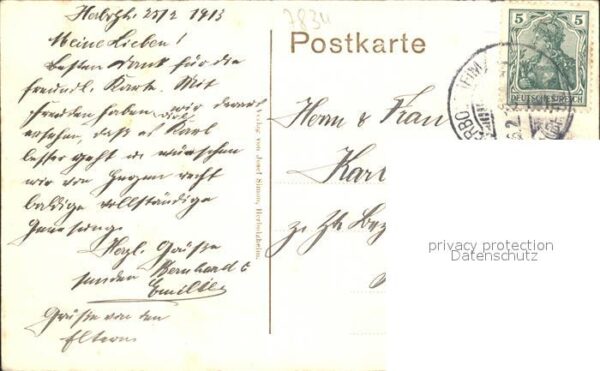 Herbolzh. 25/2 1913
Meine Lieben!
Besten Dank für die
freundl. Karte. Mit
Freuden haben wir daraus
ersehen, daß es Karl
besser geht u. wünschen
wir von Herzen recht
baldige vollständige
Genesung.
Herzl. Grüße
senden Bernhard &
Emilie
Grüße von den
Eltern
7834
Postkarte
Verlag von Josef Simon, Herbolzheim.
Herrn & Frau
Karl
z. Zt.
5 5
DEUTSCHES REICH
privacy protection
Datenschutz